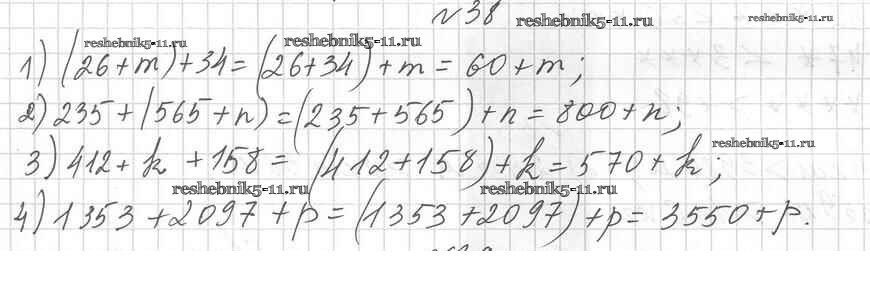 №38 reshebnik5-11.ru reshebnik5-11.ru
reshebnik5-11.ru reshebnik5-11.ru
1) (26+m)+34=(26+34)+m=60+m;
2) 235+(565+n)=(235+565)+n=800+n;
reshebnik5-11.ru
3) 412+k+158=(412+158)+k=570+k;
reshebnik5-11.ru reshebnik5-11.ru
4) 1353+2097+p=(1353+2097)+p=3550+p.